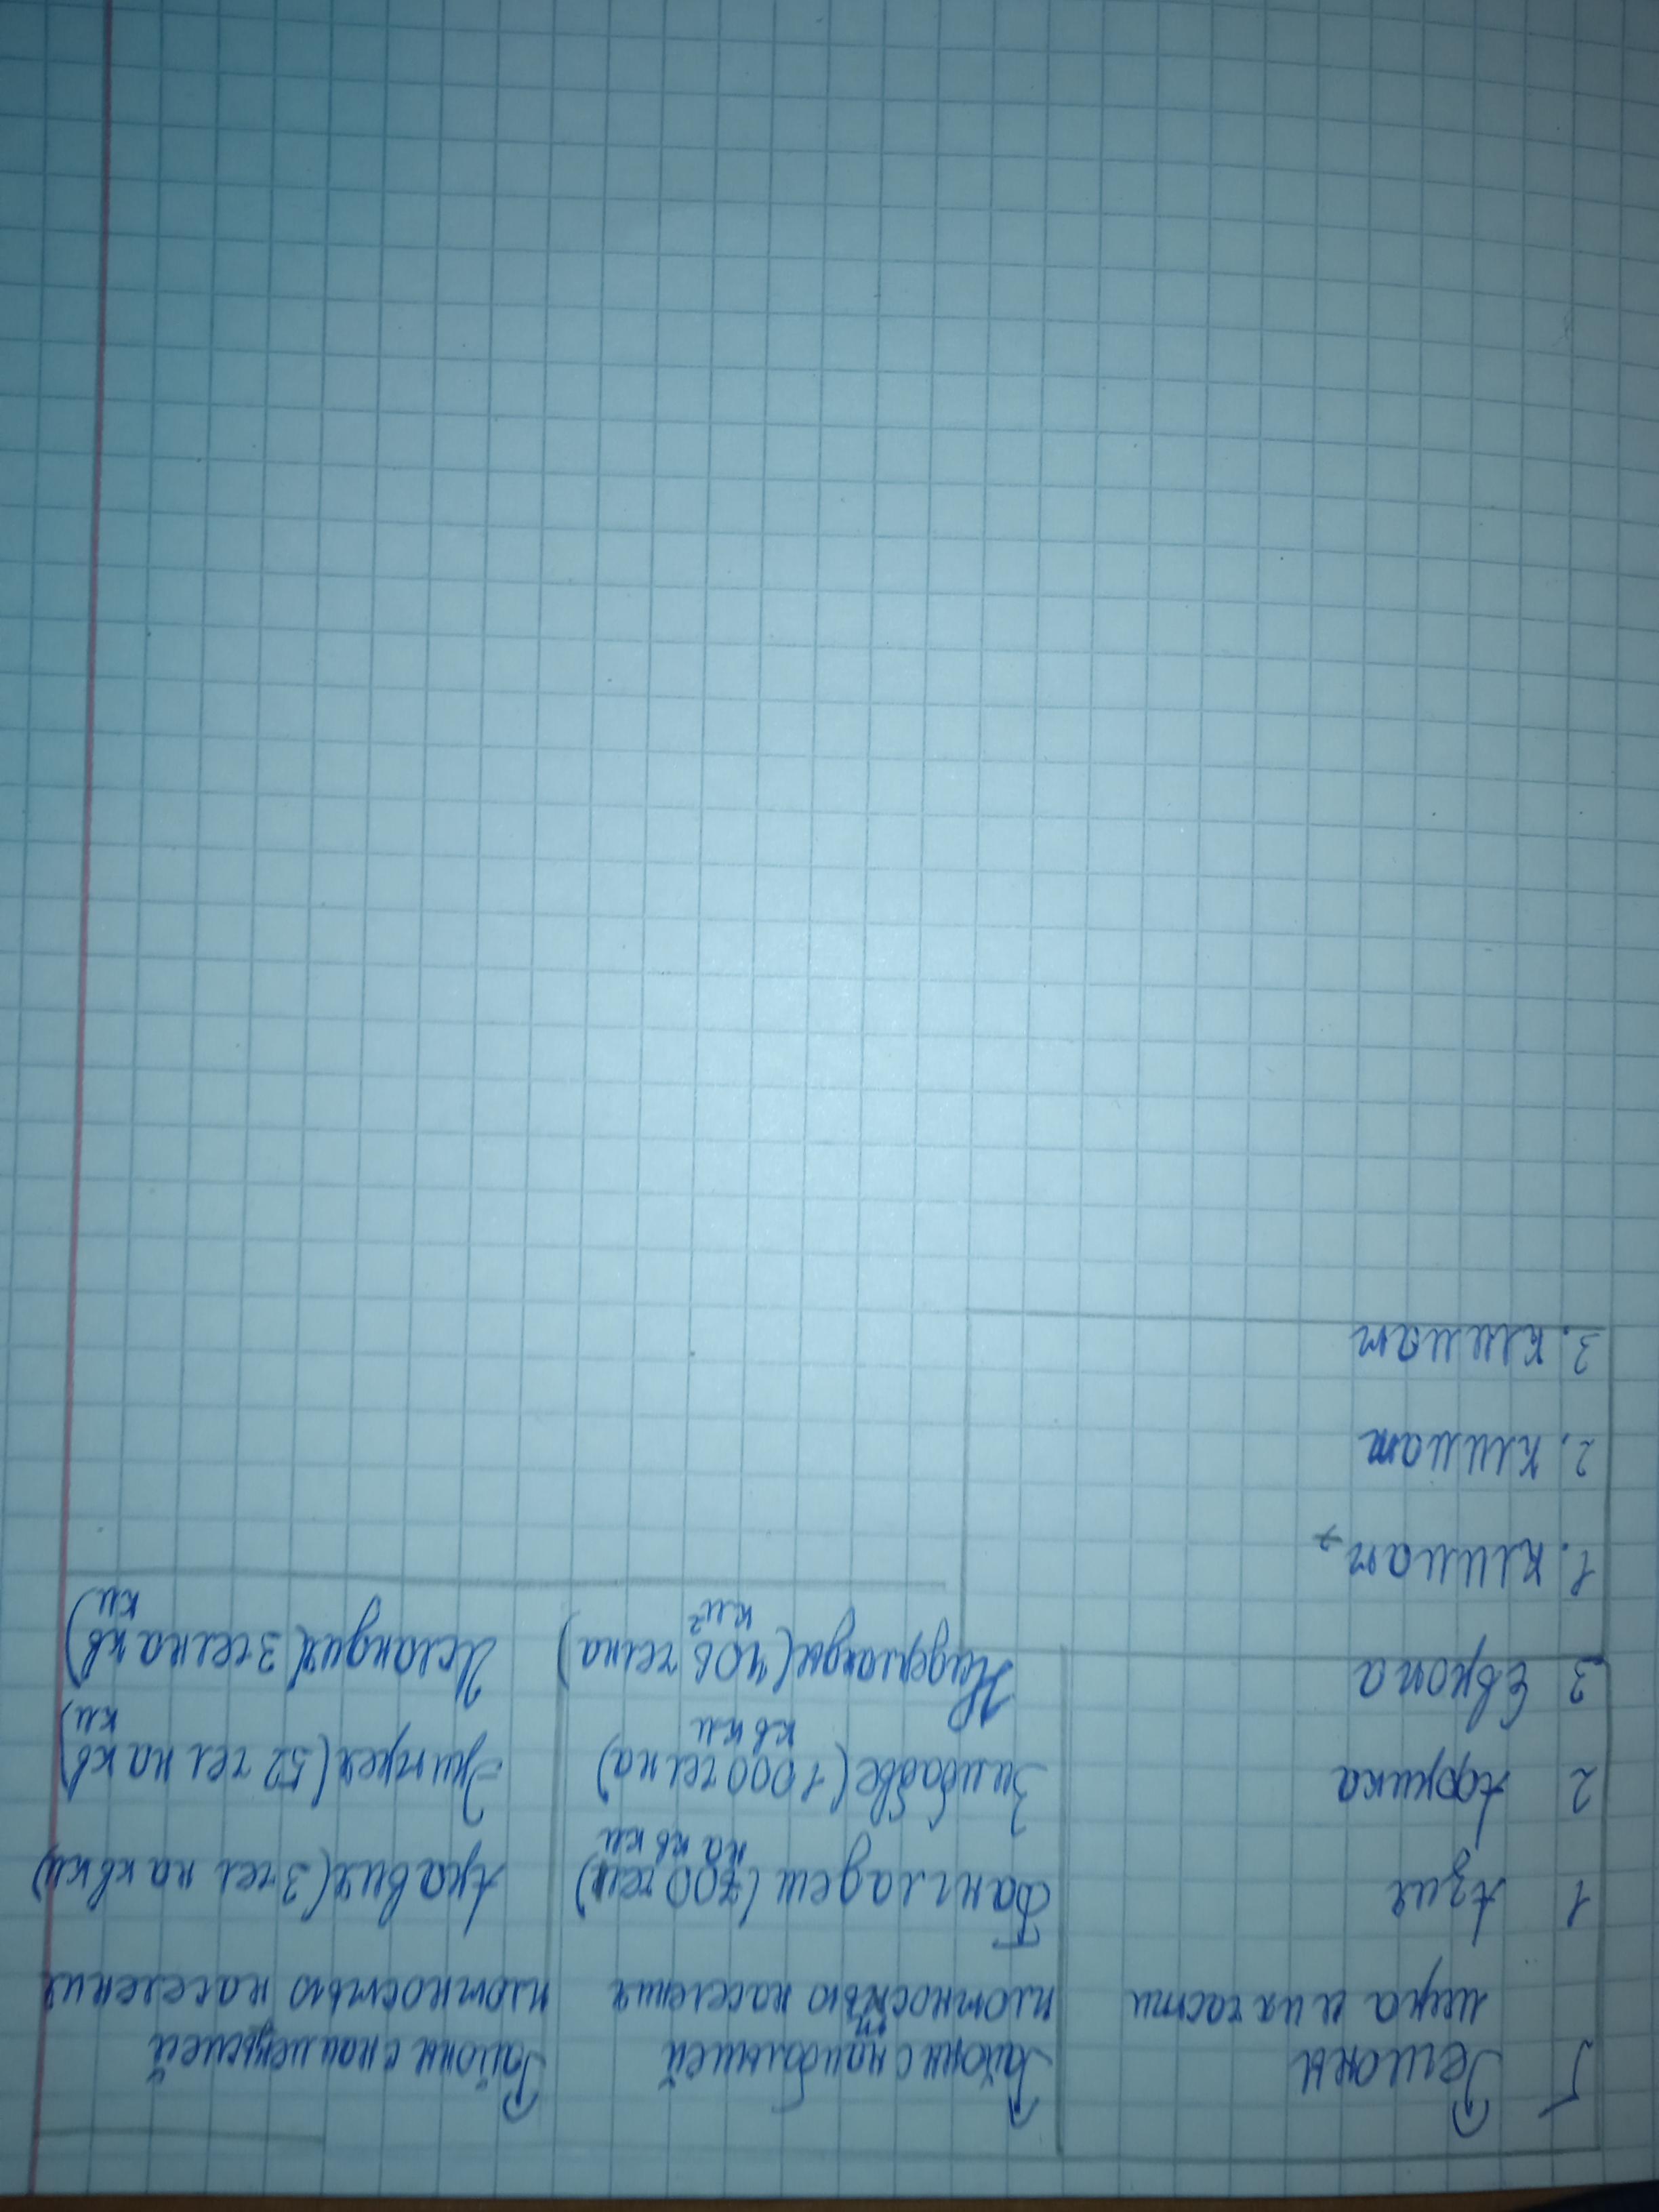 5 Регионы Районы с наибольшей Районы с наименьшей
мира и их части плотностью населения плотностью населения
1 Азия Бангладеш (700 чел Аравия (3 чел на кв км)
на кв км)
2 Африка Зимбабве (1000 чел на Эритрея (52 чел на кв
кв км) км)
3 Европа Нидерланды (406 чел на Исландия (3 чел на кв
км²) км)
1. климат,
2. климат
3. климат